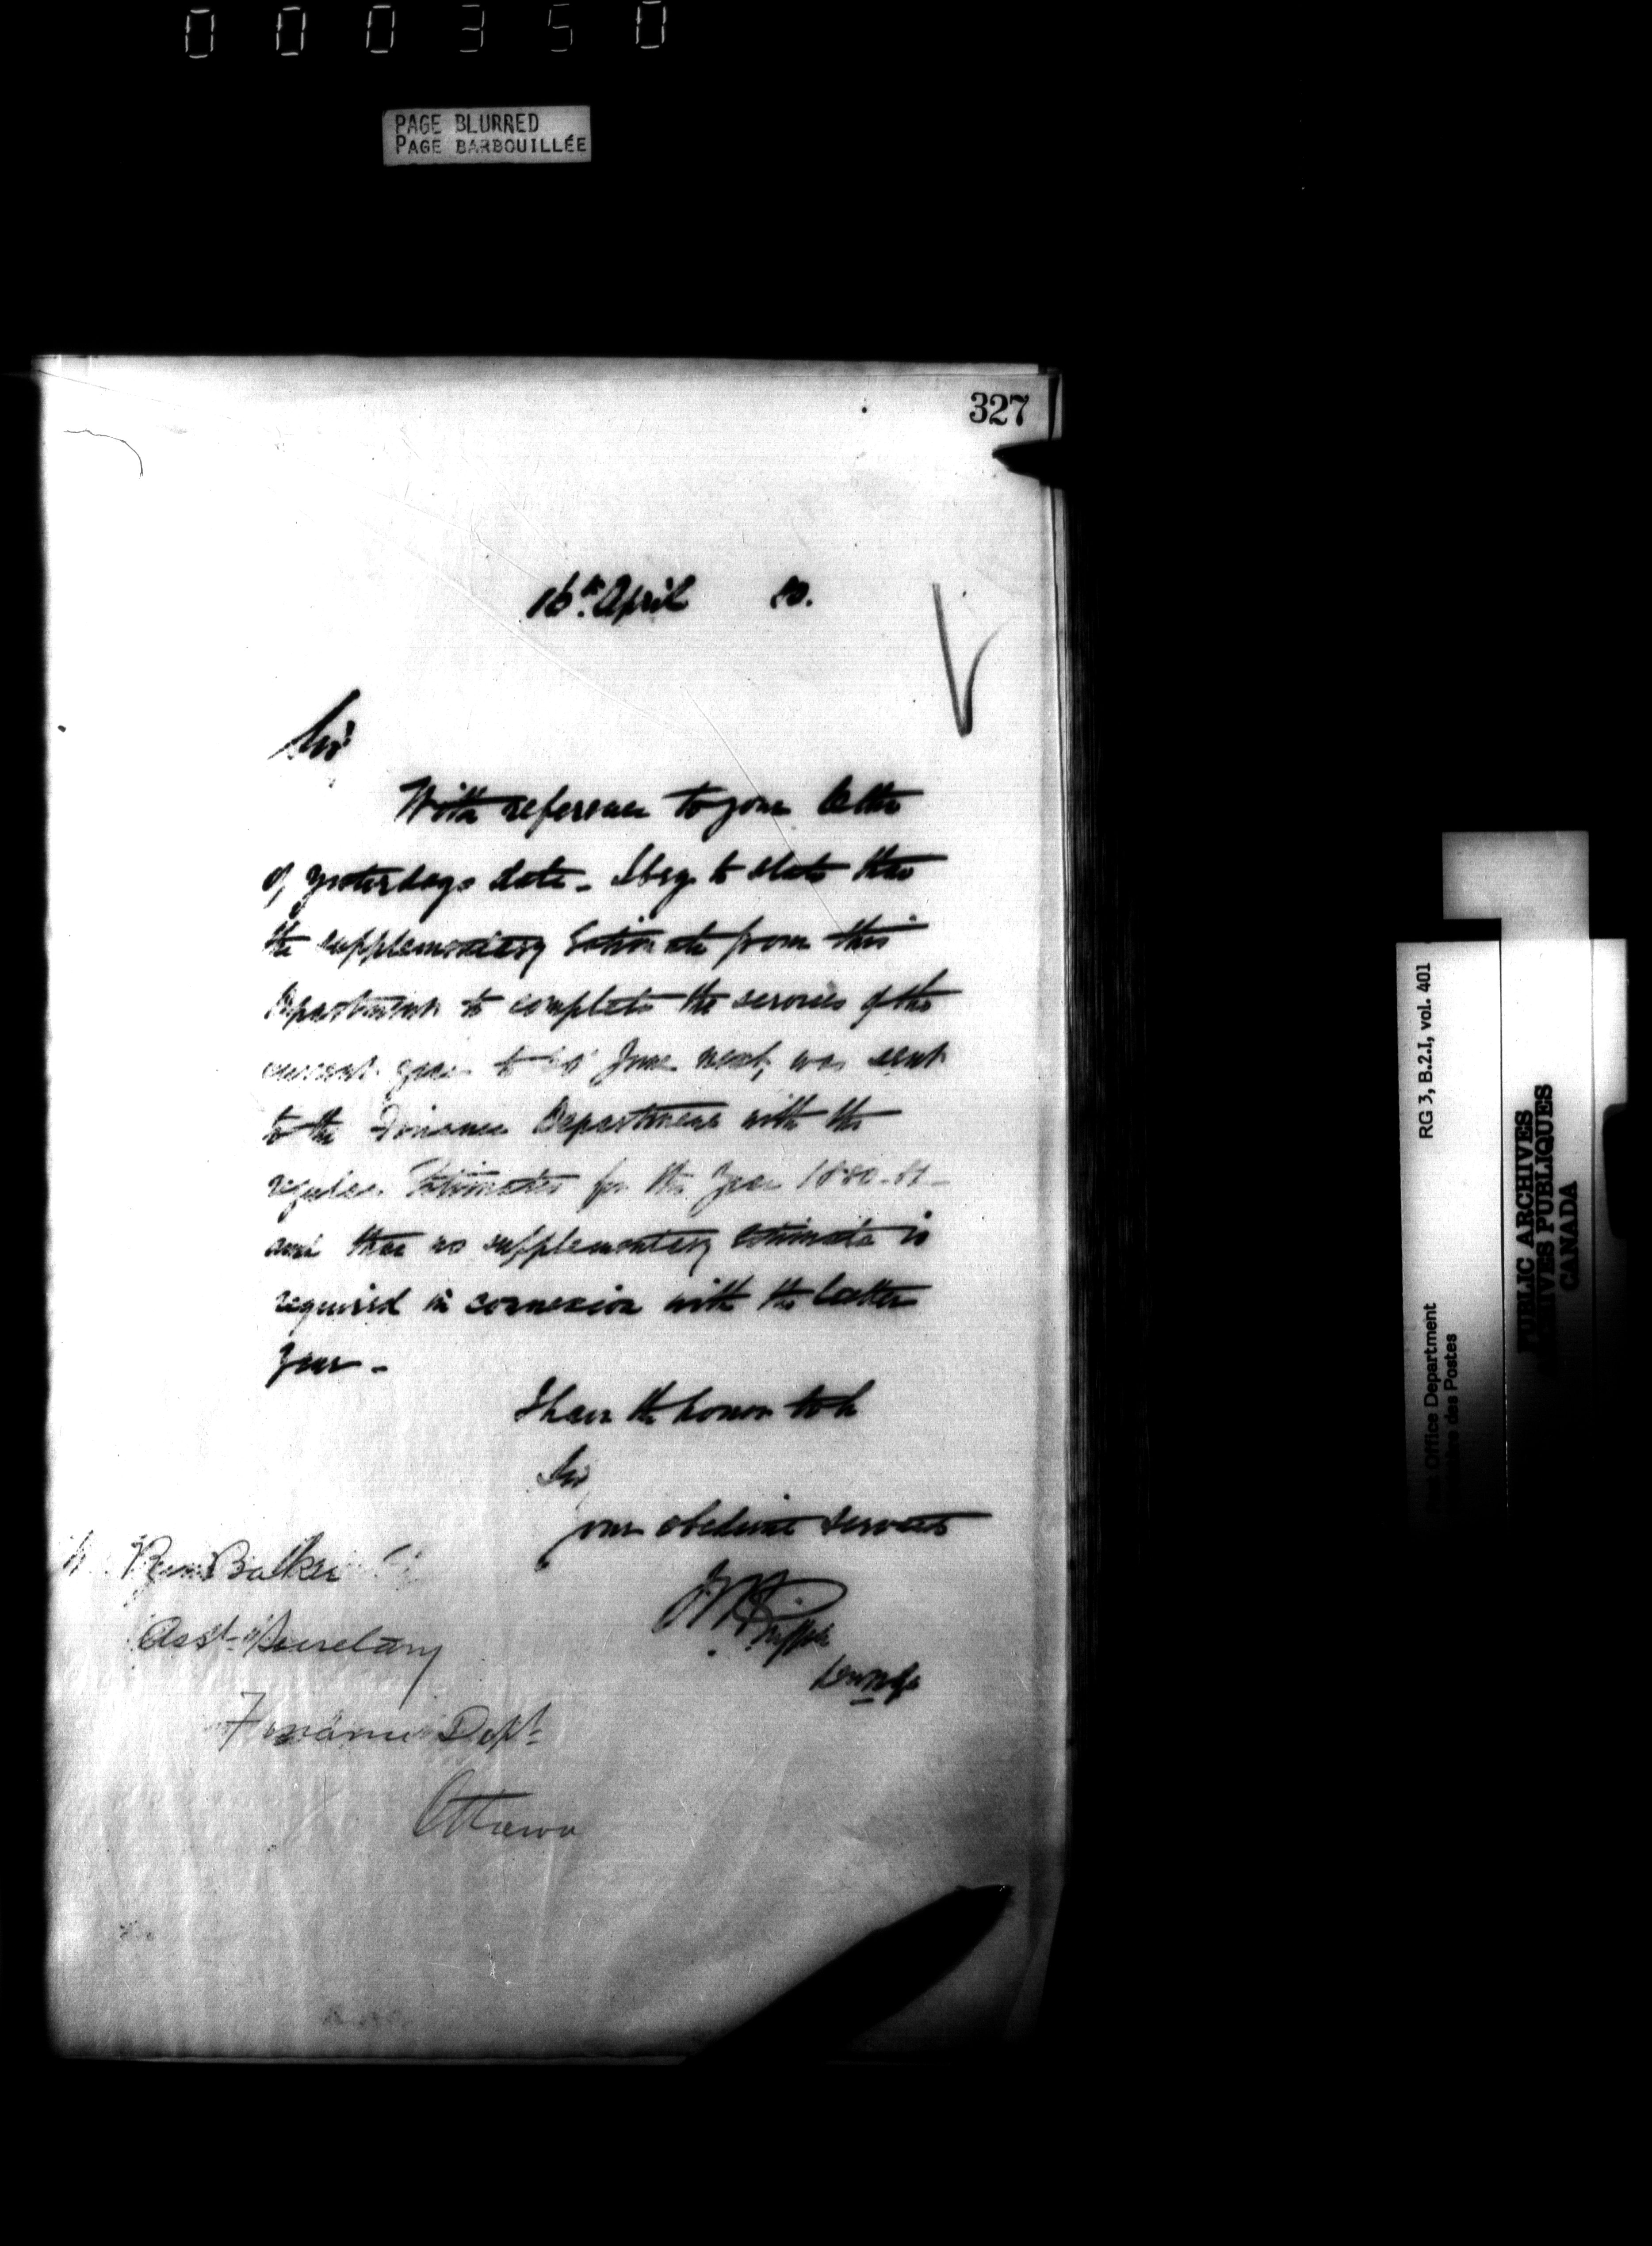 000350
PAGE BLURRED
PAGE BARBOUILLÉE
327
16th April 80.
Sir
With reference to your letter
of yesterdays date - I beg to state that
the supplementary Estimate from this
Department to complete the services of the
current year to 30 June next, was sent
to the Finance Department with the
regular Estimates for the Year 1880-81-
and that no supplementary estimate is
required in connexion with the latter
Year -
I have the honor to be
Sir
your obedient servant
Asst Secretary
Finance Dept
Ottawa
RG 3, B.2.I, vol. 401
Post Office Department
des Postes
PUBLIC ARCHIVES
ARCHIVES PUBLIQUES
CANADA